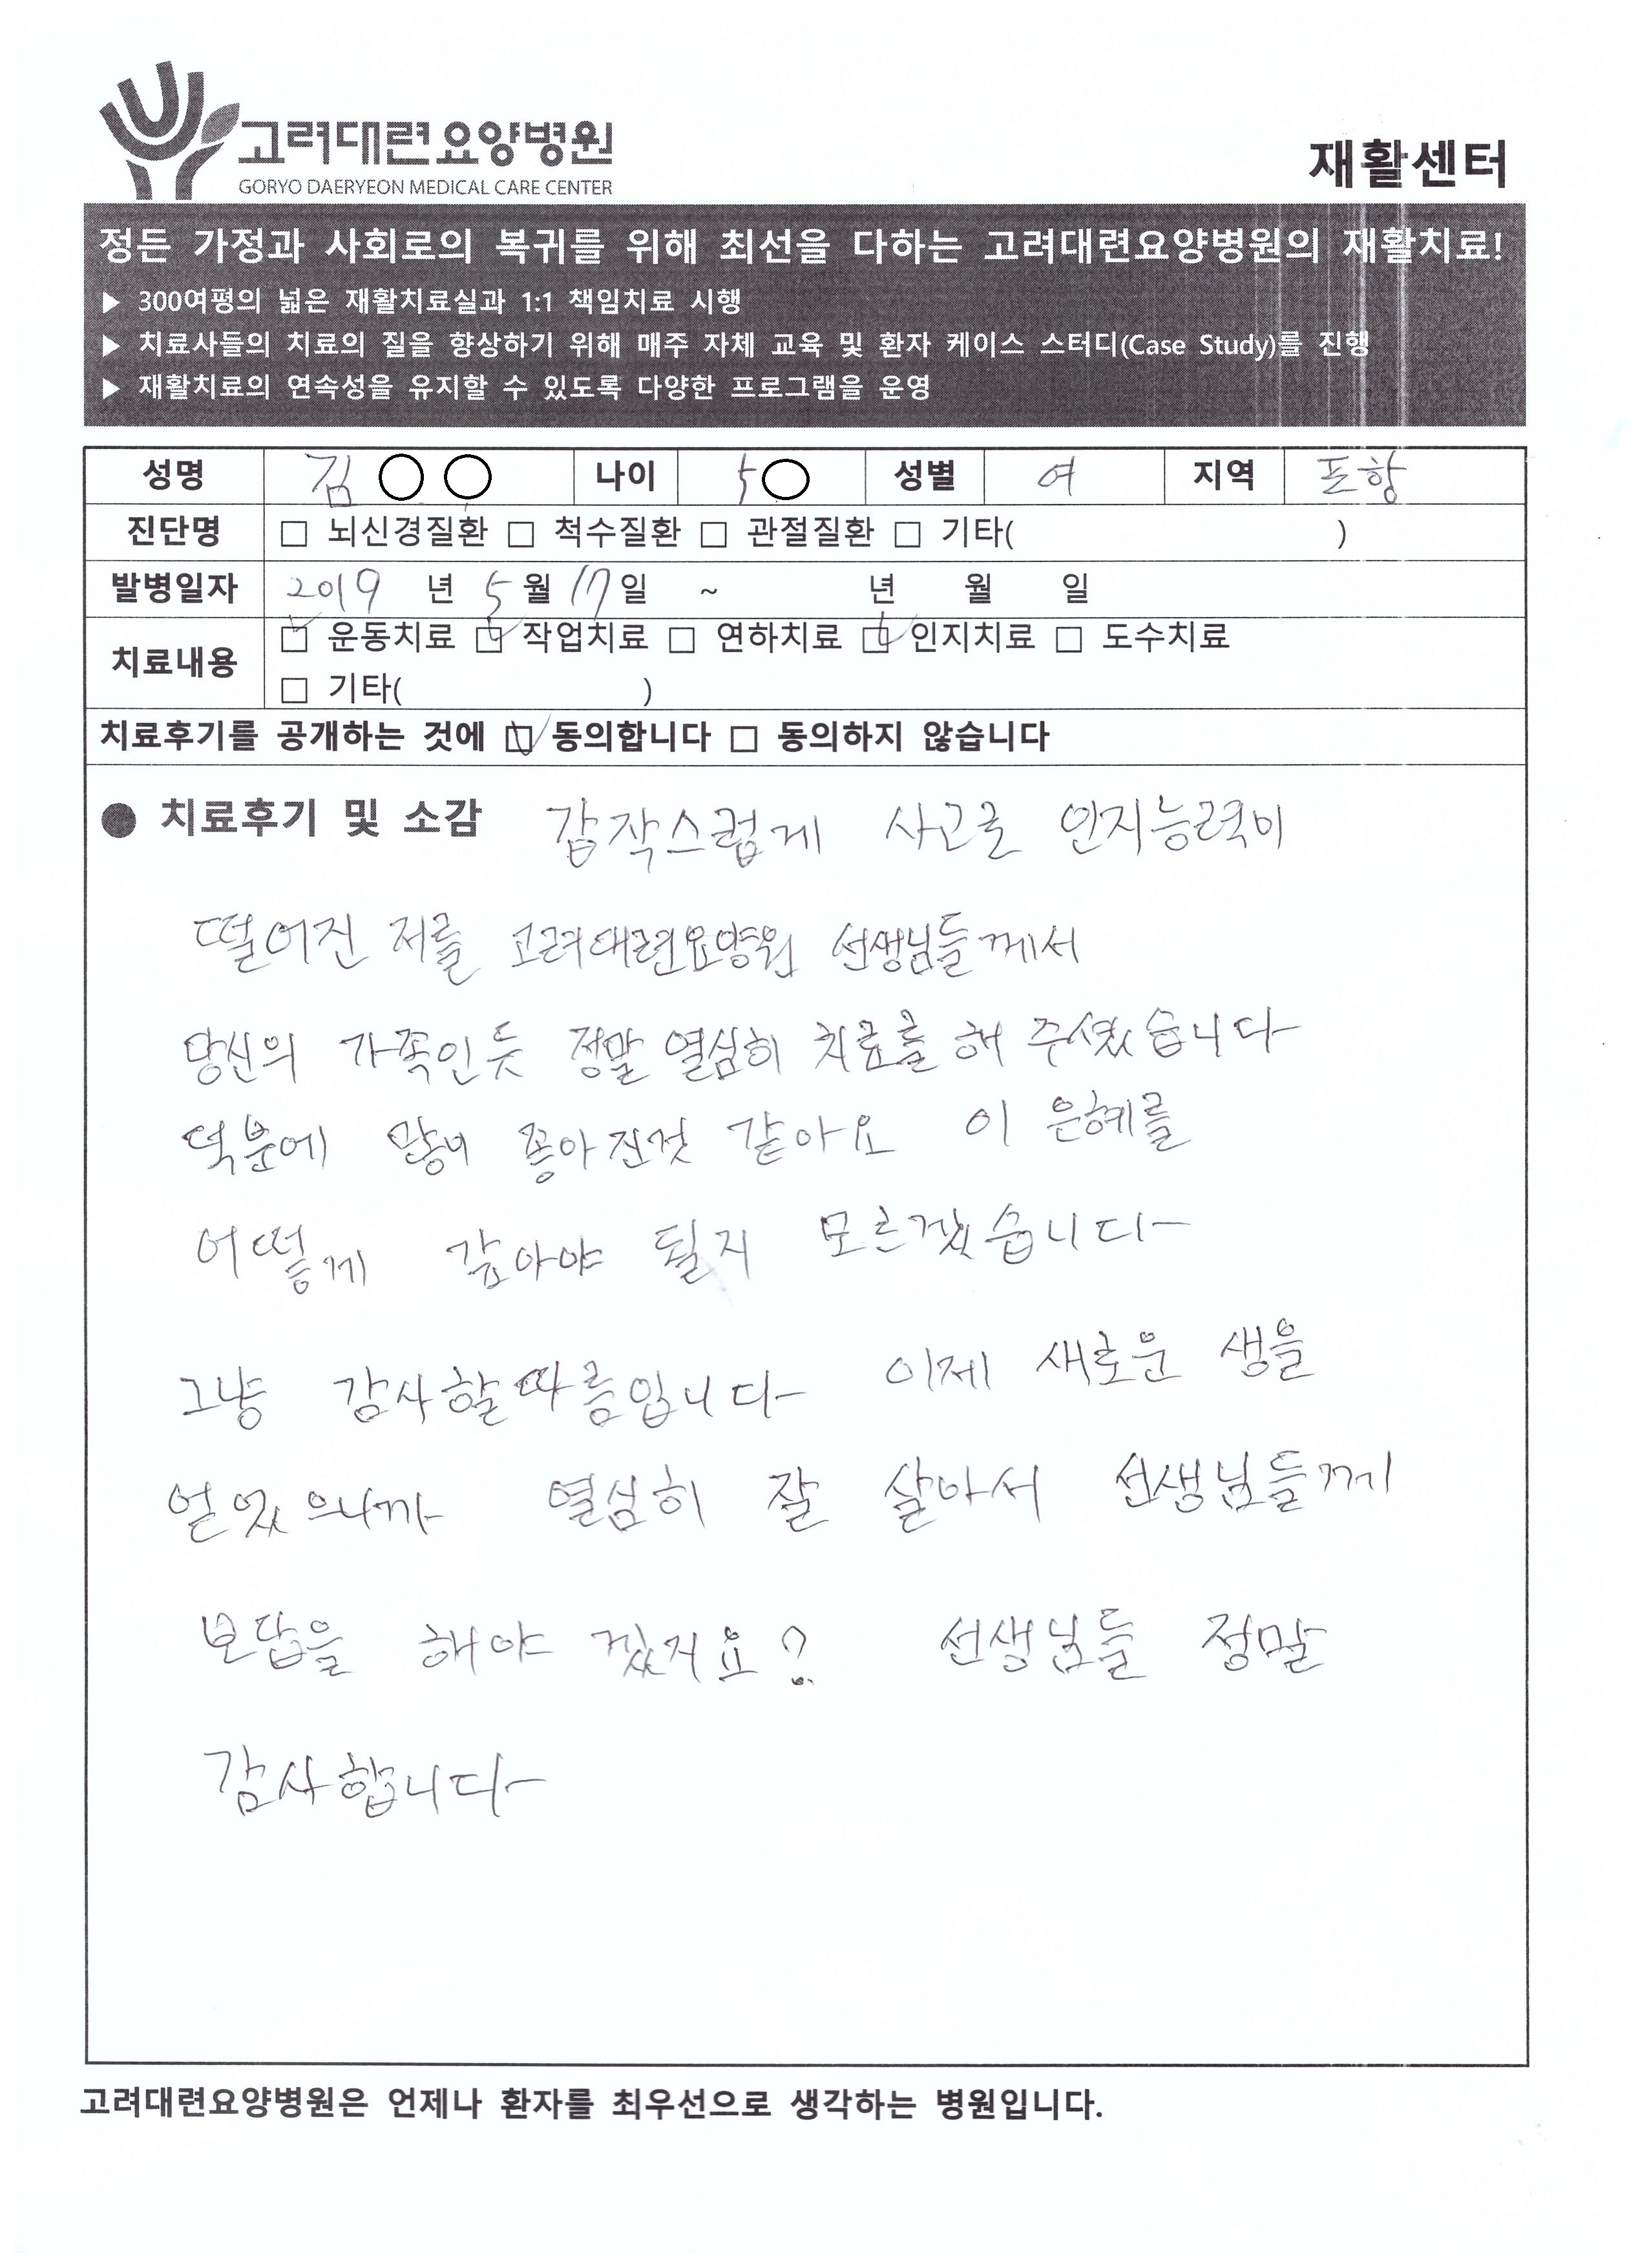 고려대련요양병원
GORYO DAERYEON MEDICAL CARE CENTER
재활센터
정든 가정과 사회로의 복귀를 위해 최선을 다하는 고려대련요양병원의 재활치료!
▶ 300여평의 넓은 재활치료실과 1:1 책임치료 시행
▶ 치료사들의 치료의 질을 향상하기 위해 매주 자체 교육 및 환자 케이스 스터디(Case Study)를 진행
▶ 재활치료의 연속성을 유지할 수 있도록 다양한 프로그램을 운영
성명 김 ○ ○ 나이 5○ 성별 여 지역 포항
진단명 □ 뇌신경질환 □ 척수질환 □ 관절질환 □ 기타( )
발병일자 2019 년 5 월 17 일 ~ 년 월 일
치료내용 ☑ 운동치료 ☑ 작업치료 □ 연하치료 ☑ 인지치료 □ 도수치료
□ 기타( )
치료후기를 공개하는 것에 ☑ 동의합니다 □ 동의하지 않습니다
● 치료후기 및 소감 갑작스럽게 사고로 인지능력이
떨어진 저를 고려대련요양원 선생님들께서
당신의 가족인듯 정말 열심히 치료를 해 주셨습니다
덕분에 많이 좋아진것 같아요 이 은혜를
어떻게 갚아야 될지 모르겠습니다
그냥 감사할따름입니다 이제 새로운 생을
얻었으니까 열심히 잘 살아서 선생님들께
보답을 해야 겠지요? 선생님들 정말
감사합니다
고려대련요양병원은 언제나 환자를 최우선으로 생각하는 병원입니다.